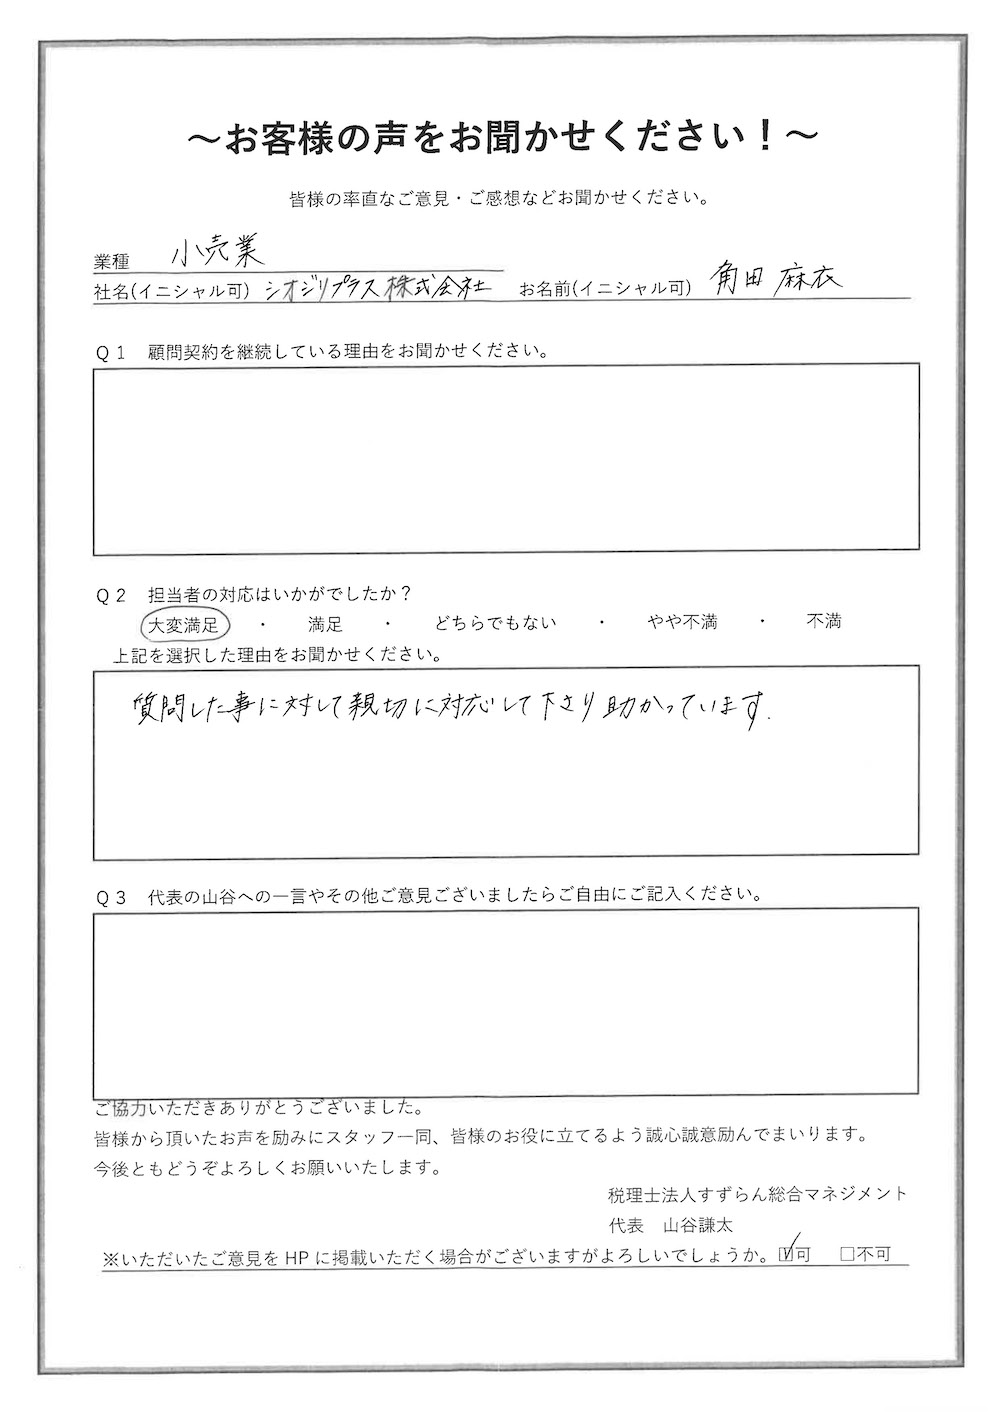 ～お客様の声をお聞かせください！～
皆様の率直なご意見・ご感想などお聞かせください。
業種 小売業
社名(イニシャル可) シオジリプラス株式会社 お名前(イニシャル可) 角田 麻衣
Q１ 顧問契約を継続している理由をお聞かせください。
Q２ 担当者の対応はいかがでしたか？
大変満足 ・ 満足 ・ どちらでもない ・ やや不満 ・ 不満
上記を選択した理由をお聞かせください。
質問した事に対して親切に対応して下さり助かっています.
Q３ 代表の山谷への一言やその他ご意見ございましたらご自由にご記入ください。
ご協力いただきありがとうございました。
皆様から頂いたお声を励みにスタッフ一同、皆様のお役に立てるよう誠心誠意励んでまいります。
今後ともどうぞよろしくお願いいたします。
税理士法人すずらん総合マネジメント
代表 山谷謙太
※いただいたご意見をHPに掲載いただく場合がございますがよろしいでしょうか。☑可 □不可